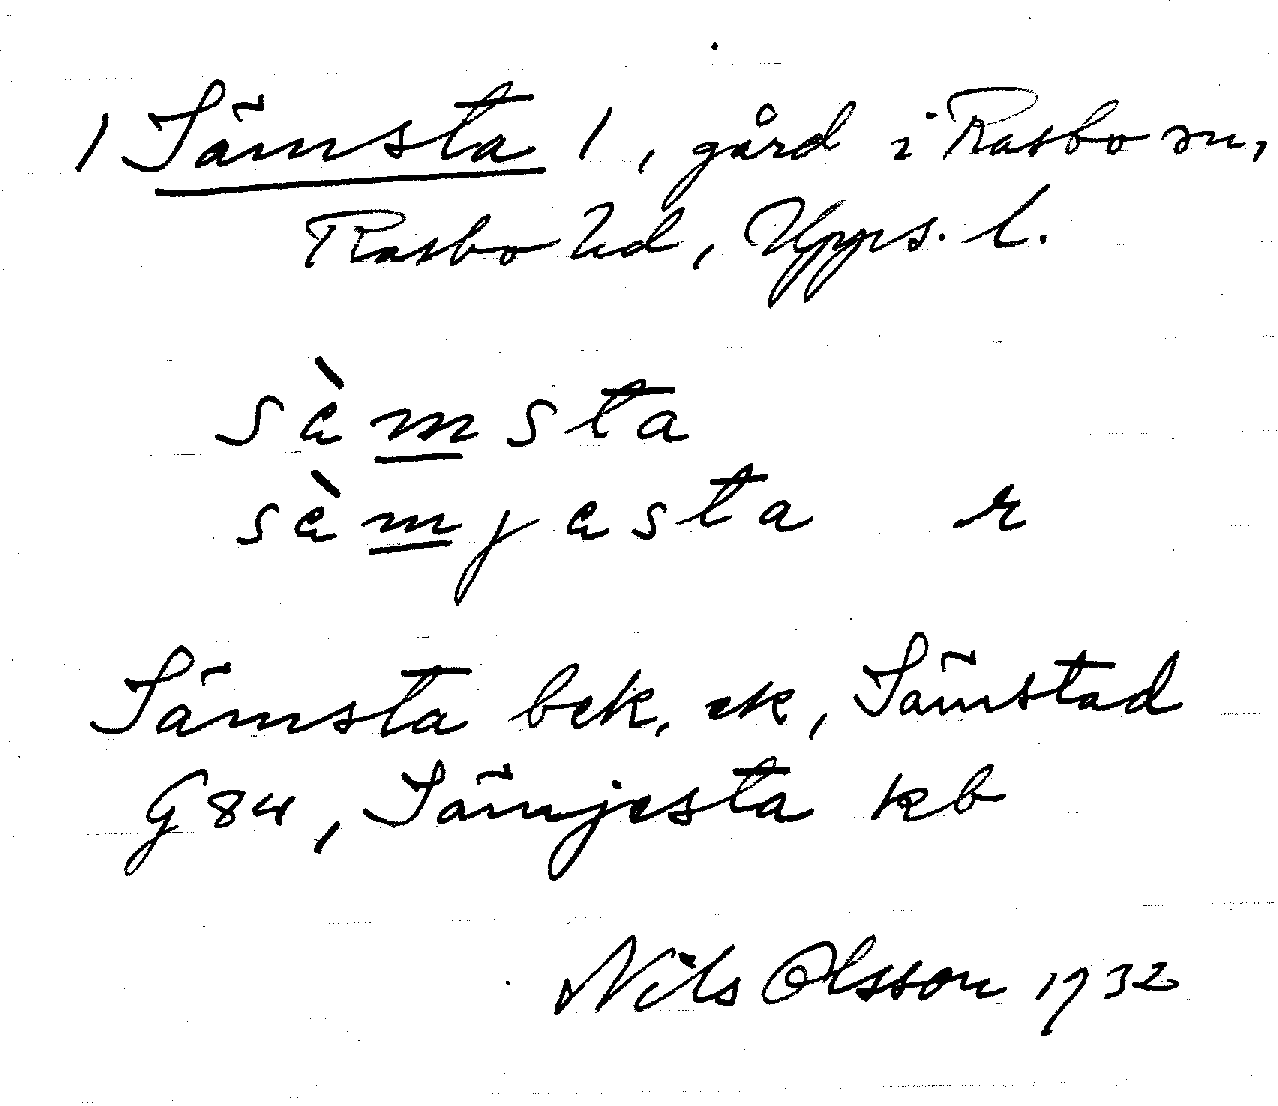 1 Sämsta 1, gård i Rasbo sn,
Rasbo hd, Upps. l.
sὲmsta
sὲmjesta r
Sämsta bek. ek, Sämstad
G84, Sämjesta kb
Nils Olsson 1932